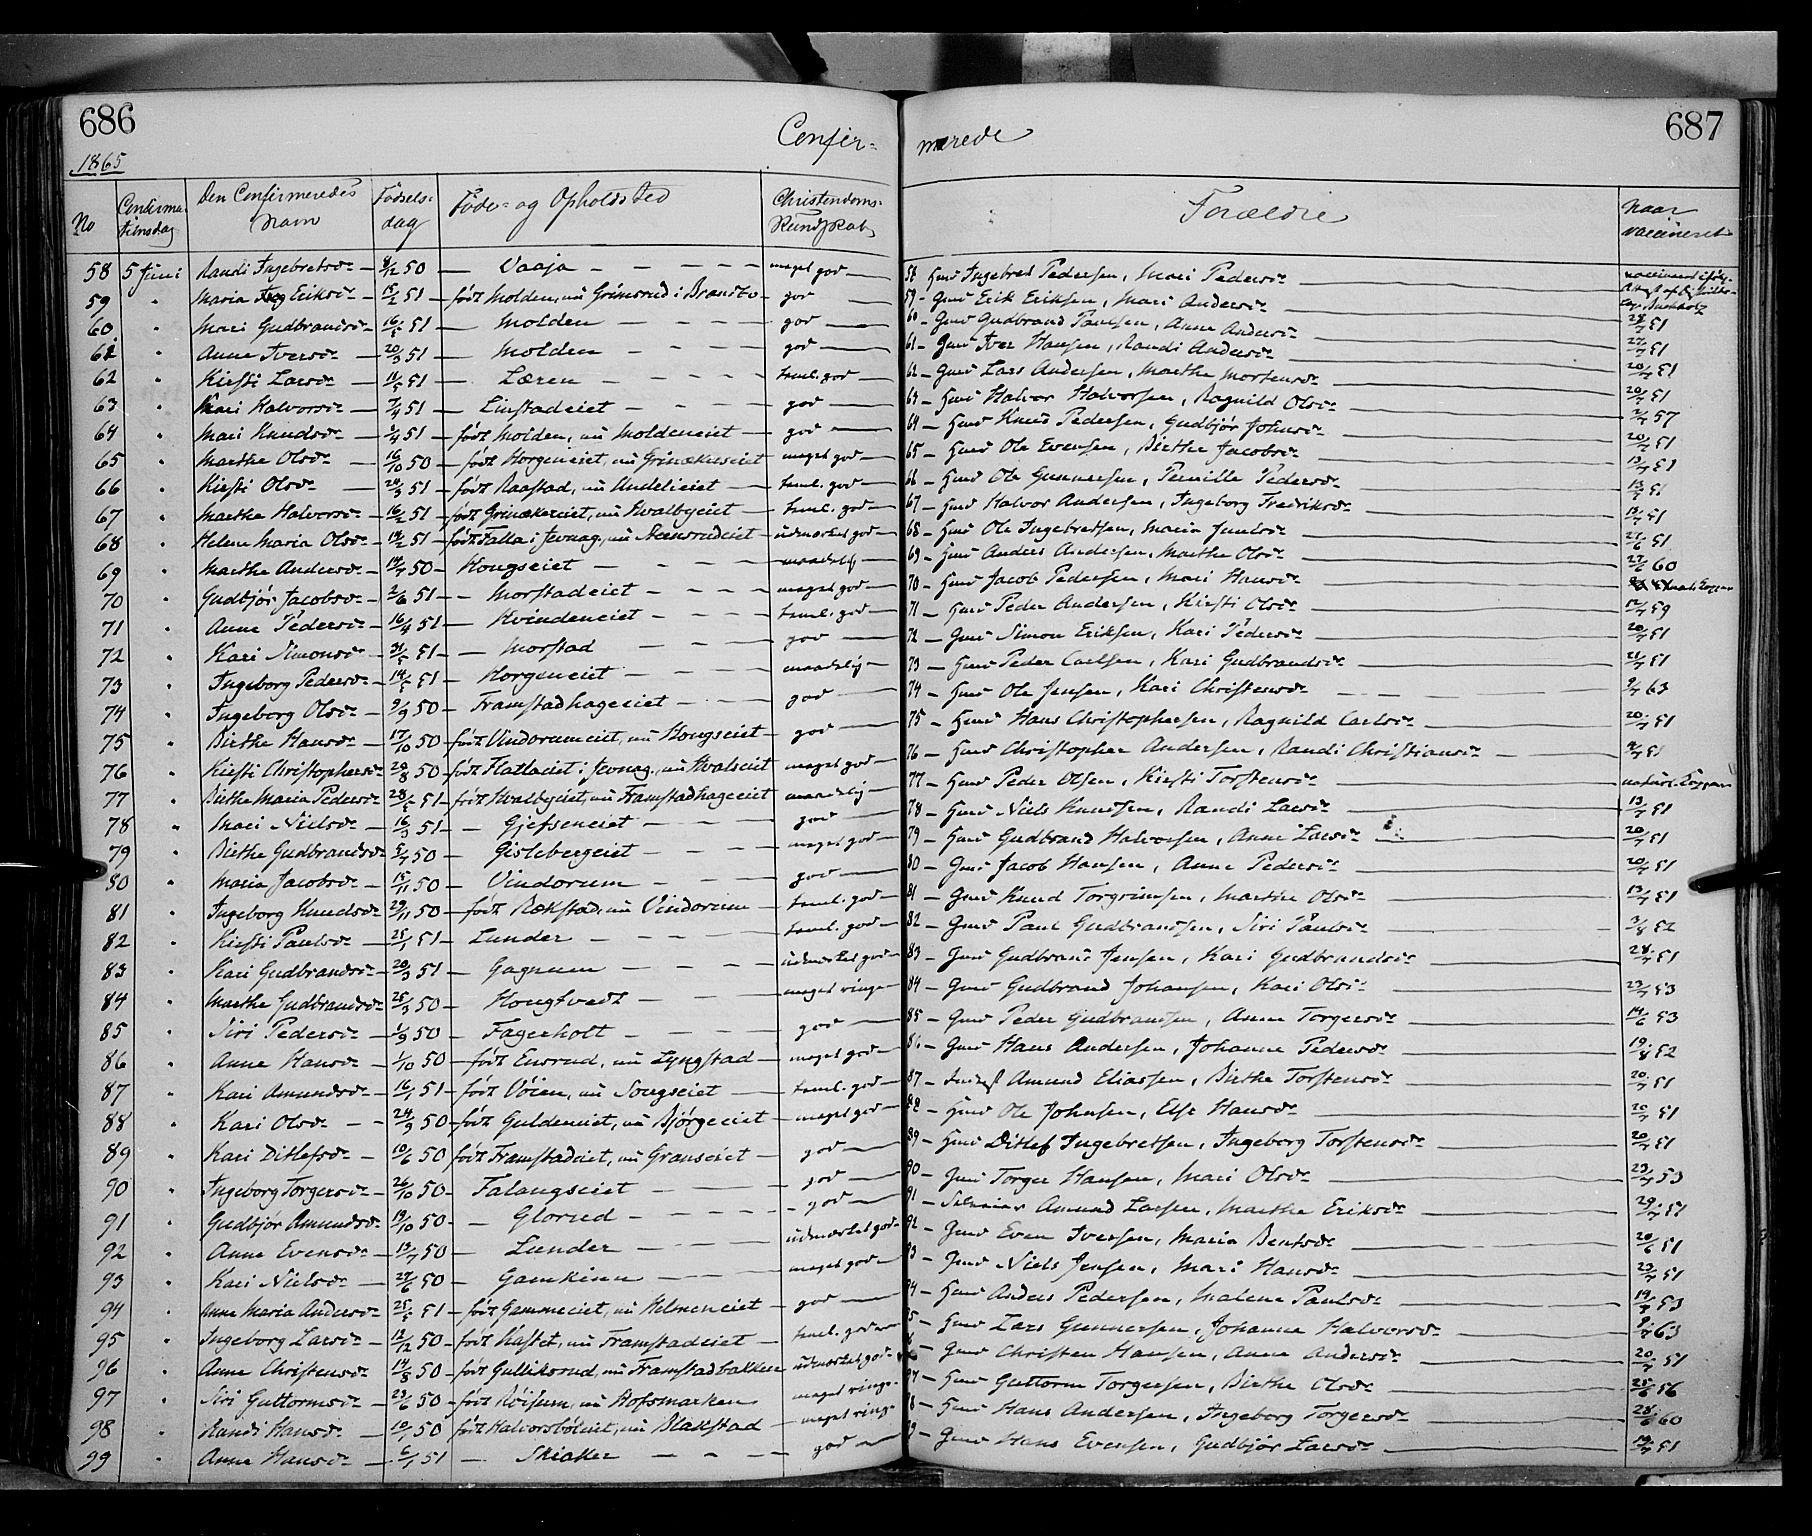 686
687
Confir- merede
1865
No
Confirma-
tionsdag
Den Confirmeredes
Navn
Fødsels-
dag
Føde- og Opholdsted
Christendoms-
Kundskab
Forældre
Naar
vaccineret
58 5 Juni Randi Ingebretsd. 8/12 50 Vaaja meget god 58 Gmd Ingebret Pedersen, Mari Pedersd.
59 " Maria Eriksd. 15/2 51 født Molden, nu Grimsrud i Brandbo god 59 Gmd Erik Eriksen, Mari Andersd.
60 " Mari Gudbrandsd. 16/5 51 Molden god 60 Gmd Gudbrand Paulsen, Anne Andersd. 24/7 51
61 " Anne Iversd. 20/3 51 Molden god 61 Gmd Iver Hansen, Randi Andersd. 27/7 51
62 " Kirsti Larsd. 11/5 51 Læren teml. god 62 Gmd Lars Andersen, Marthe Mortensd. 20/7 51
63 " Kari Halvorsd. 7/4 51 Linstadeiet god 63 Hmd Halvor Halvorsen, Ragnild Olsd. 20/7 51
64 " Mari Knudsd. 2/4 51 født Molden, nu Moldeneiet god 64 Hmd Knud Pedersen, Gudbjør Johnsd. 57
65 " Marthe Olsd. 16/10 50 født Horgeneiet, nu Grinækereiet meget god 65 Hmd Ole Evensen, Birthe Jacobsd. 20/7 51
66 " Kirsti Olsd. 24/3 51 født Raastad, nu Undelieiet teml. god 66 Hmd Ole Gunnersen, Pernille Pedersd. 13/7 51
67 " Marthe Halvorsd. 16/2 51 født Grinækereiet, nu Hvalbyeiet teml. god 67 Hmd Halvor Andersen, Ingeborg Fredriksd. 13/7 51
68 " Helene Maria Olsd. 14/2 51 født Falla i Jevnag, nu Steensrudeiet udmærket god 68 Hmd Ole Ingebretsen, Maria Juulsd. 13/7 51
69 " Marthe Andersd. 14/7 50 Kongseiet maadelig 69 Hmd Anders Andersen, Marthe Olsd. 27/6 51
70 " Gudbjør Jacobsd. 2/6 51 Morstadeiet meget god 70 Hmd Jacob Pedersen, Mari Hansd. 27/6 60
71 " Anne Pedersd. 16/4 51 Hvindeneiet teml. god 71 Hmd Peder Andersen, Kirsti Olsd. 12/7 59
72 " Kari Simonsd. 31/5 51 Morstad god 72 Gmd Simon Eriksen, Kari Pedersd. 20/7 51
73 " Ingeborg Pedersd. 14/5 51 Horgeneiet maadelig 73 Hmd Peder Carlsen, Kari Gudbrandsd. 21/7 51
74 " Ingeborg Olsd. 9/9 50 Framstadhageeiet god 74 Hmd Ole Jensen, Kari Christensd. 9/7 63
75 " Birthe Hansd. 17/10 50 født Vindorumeiet, nu Kongseiet god 75 Hmd Hans Christophersen, Ragnild Carlsd. 20/7 51
76 " Kirsti Christophersd. 20/8 50 født Flatlaeiet i Jevnag, nu Hvalseiet meget god 76 Hmd Christopher Andersen, Randi Christiansd. 51
77 " Birthe Maria Pedersd. 28/5 51 født Hvalbyeiet, nu Framstadhageeiet maadelig 77 Hmd Peder Olsen, Kirsti Torstensd. naturl. Kopper
78 " Mari Nielsd. 16/3 51 Gjefseneiet god 78 Hmd Niels Knudsen, Randi Larsd. 13/7 51
79 " Birthe Gudbrandsd. 5/7 50 Gislebergeiet meget god 79 Hmd Gudbrand Halvorsen, Anne Larsd. 20/7 51
80 " Maria Jacobsd. 15/11 50 Vindorum god 80 Gmd Jacob Hansen, Anne Pedersd. 20/7 51
81 " Ingeborg Knudsd. 29/11 50 født Rækstad, nu Vindorum teml. god 81 Gmd Knud Torgrimsen, Marthe Olsd. 13/7 51
82 " Kirsti Paulsd. 25/1 51 Lunder teml. god 82 Gmd Paul Gudbrandsen, Siri Paulsd. 3/8 52
83 " Kari Gudbrandsd. 20/3 51 Gagnum udmærket god 83 Gmd Gudbrand Jensen, Kari Gudbrandsd. 24/7 51
84 " Marthe Gudbrandsd. 25/3 50 Hongtvedt meget ringe 84 Gmd Gudbrand Johansen, Kari Olsd. 23/7 53
85 " Siri Pedersd. 1/9 50 Fagerholt god 85 Gmd Peder Gudbrandsen, Anne Torgersd. 14/6 53
86 " Anne Hansd. 1/10 50 født Ensrud, nu Lyngstad meget god 86 Gmd Hans Andersen, Johanne Pedersd. 19/8 52
87 " Kari Amundsd. 16/1 51 født Vøien, nu Songseiet teml. god 87 Inderst Amund Eliassen, Birthe Torstensd. 20/7 51
88 " Kari Olsd. 24/9 50 født Guldeneiet, nu Bjørgeeiet meget god 88 Hmd Ole Johnsen, Else Hansd. 20/7 51
89 " Kari Ditlefsd. 10/6 50 født Framstadeiet, nu Granseiet god 89 Hmd Ditlef Ingebretsen, Ingeborg Torstensd. 20/7 51
90 " Ingeborg Torgersd. 26/10 50 Falangseiet god 90 Gmd Torger Hansen, Mari Olsd. 23/7 53
91 " Gudbjør Amundsd. 19/10 50 Glorud god 91 Amund Larsen, Marthe Eriksd. 29/7 51
92 " Anne Evensd. 13/7 50 Lunder udmærket god 92 Gmd Even Iversen, Maria Bentsd. 20/6 51
93 " Kari Nielsd. 27/6 50 Gamkinn meget god 93 Gmd Niels Jensen, Mari Hansd. 23/7 51
94 " Anne Maria Andersd. 25/5 51 født Gammeeiet, nu Helmeneiet god 94 Hmd Anders Pedersen, Malene Paulsd. 19/7 53
95 " Ingeborg Larsd. 12/12 50 født Kastet, nu Framstadeiet teml. god 95 Hmd Lars Gunnersen, Johanne Halvorsd. 9/7 63
96 " Anne Christensd. 14/8 50 født Gulliksrud, nu Framstadbakken udmærket god Gmd Christen Hansen, Anne Andersd. 20/7 51
97 " Siri Guttormsd. 23/6 50 født Røisum, nu Hofsmarken meget ringe 97 Hmd Guttorm Torgersen, Birthe Olsd. 25/6 56
98 " Randi Hansd. 10/1 50 født Halvorsbøleiet, nu Blakstad meget ringe 8 Hmd Hans Andersen, Ingeborg Torgersd. 28/6 60
99 " Anne Hansd. 6/1 51 Skiaker god 9 Gmd Hans Evensen, Gudbjør Larsd. 14/7 51